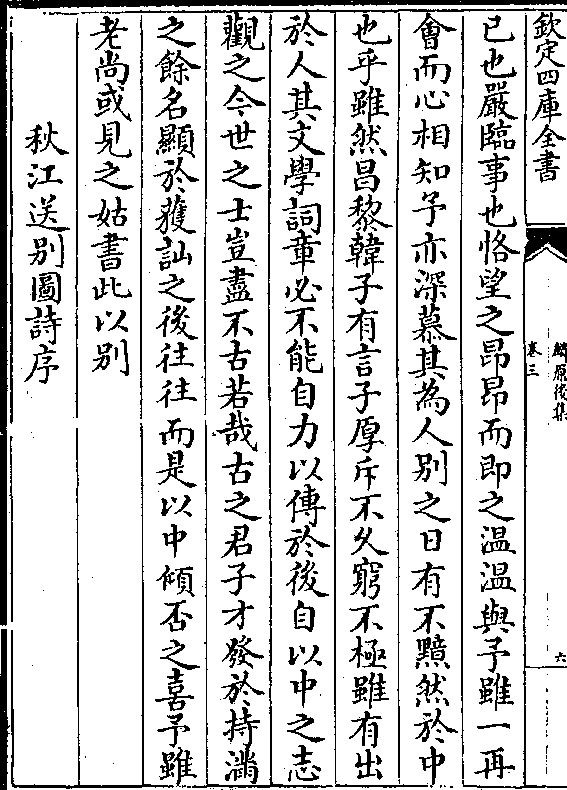 欽定四庫全書
麟原後集
卷三
六
已也嚴臨事也恪望之昂昂而即之温温與予雖一再
會而心相知予亦深慕其為人别之日有不黯然於中
也乎雖然昌黎韓子有言子厚斥不久窮不極雖有出
於人其文學詞章必不能自力以傳於後自以中之志
觀之今世之士豈盡不古若哉古之君子才發於持滿
之餘名顯於蠖詘之後往往而是以中傾否之喜予雖
老尚或見之姑書此以别
秋江送别圖詩序